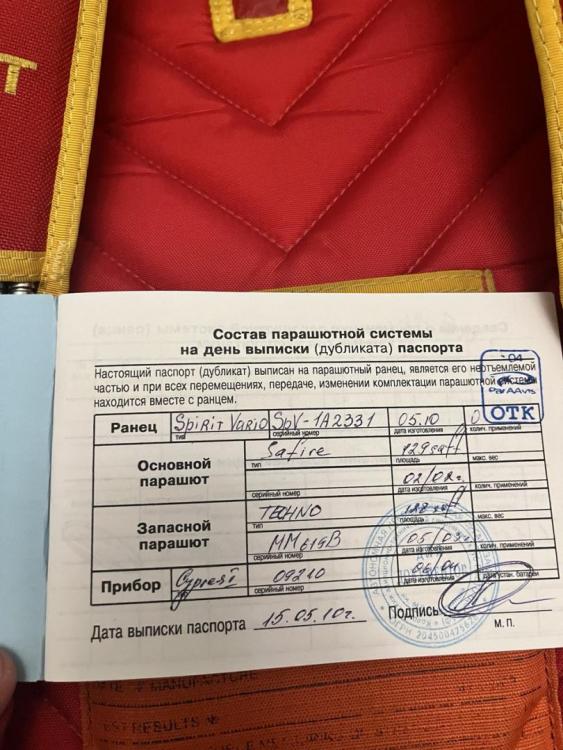 Т
Состав парашютной системы
на день выписки (дубликата) паспорта
Настоящий паспорт (дубликат) выписан на парашютный ранец, является его неотъемлемой
частью и при всех перемещениях, передаче, изменении комплектации парашютной системы
находится вместе с ранцем.
04
ОТК
Ранец Spirit Vario SpV-1A2331 05.10 0
тип серийный номер дата изготовления колич. применений
Основной парашют
Safire 129 saff
тип площадь макс. вес
02/02г.
серийный номер дата изготовления колич. применений
Запасной парашют
TECHNO
тип площадь макс. вес
MM619B 05/03
серийный номер дата изготовления колич. применений
Прибор Cypres 09210 06/04
серийный номер дата изготовления дата устан. батареи
Дата выписки паспорта 15.05.10г. Подпись
М. П.
MANUFACTURE
TEST RESULTS